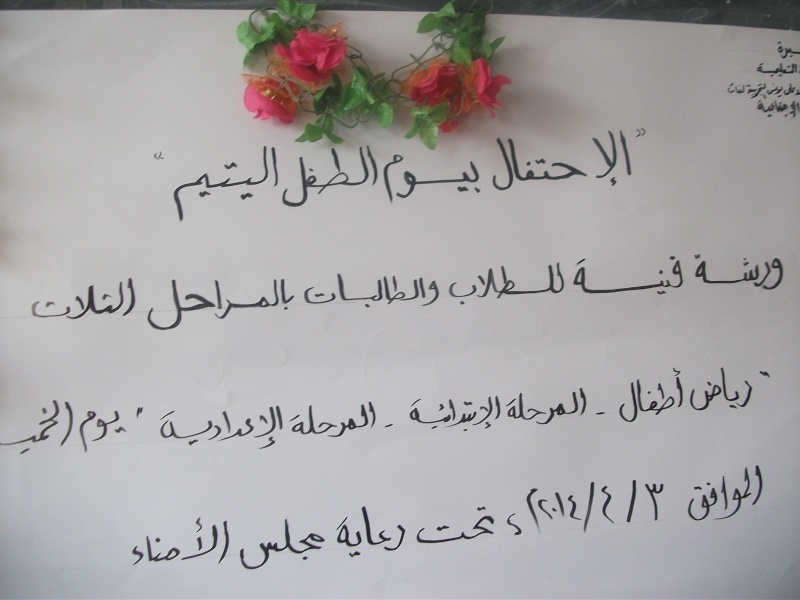 التعليمية
"الإحتفال بيوم الطفل اليتيم"
ورشة فنية للطلاب والطالبات بالمراحل الثلاث
"رياض أطفال - المرحلة الإبتدائية - المرحلة الإعدادية" يوم الخميـ
الموافق ٣/٤/٢٠١٤م، تحت رعاية مجلس الأمناء